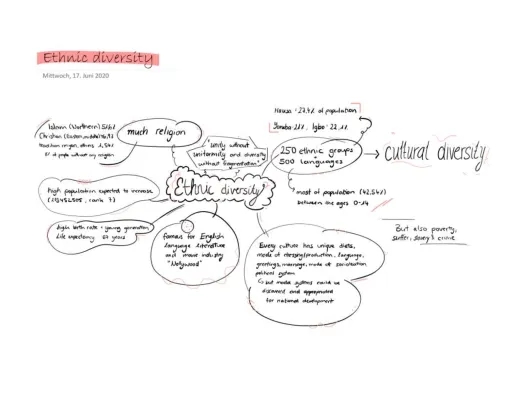 Ethnic diversity
Mittwoch, 17. Juni 2020
Hausa: 27,4% of population
Yoruba: 21%, Igbo: 22,1%
much religion
"Unity without
uniformity and diversity
without fragmentation"
250 ethnic groups
500 languages
→ cultural diversity
Ethnic diversity
high population expected to increase
rank 7)
most of population (42,54%)
between the ages 0-14
high birth rate → young generation
Life expectancy: years
famous for English
language literature
and movie industry
"Nollywood"
Every culture has unique diets,
mode of dressing/production, language,
greetings, marriage, mode of socialization
political system
↳ but mode systems could be
and appropriated
for national development
But also poverty,
& crime